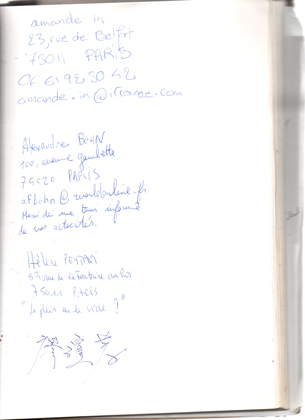 amande in
23, rue de Belfort
75011 PARIS
amande.in@ifrance.com
Alexandre BOHN
100, avenue gambetta
75020 PARIS
afbohn@worldonline.fr
Merci de me tenir informé
de vos activités.
Hélène
53 rue de la Fontaine au Roi
75011 PARIS
"Le plein ou le vide ?"